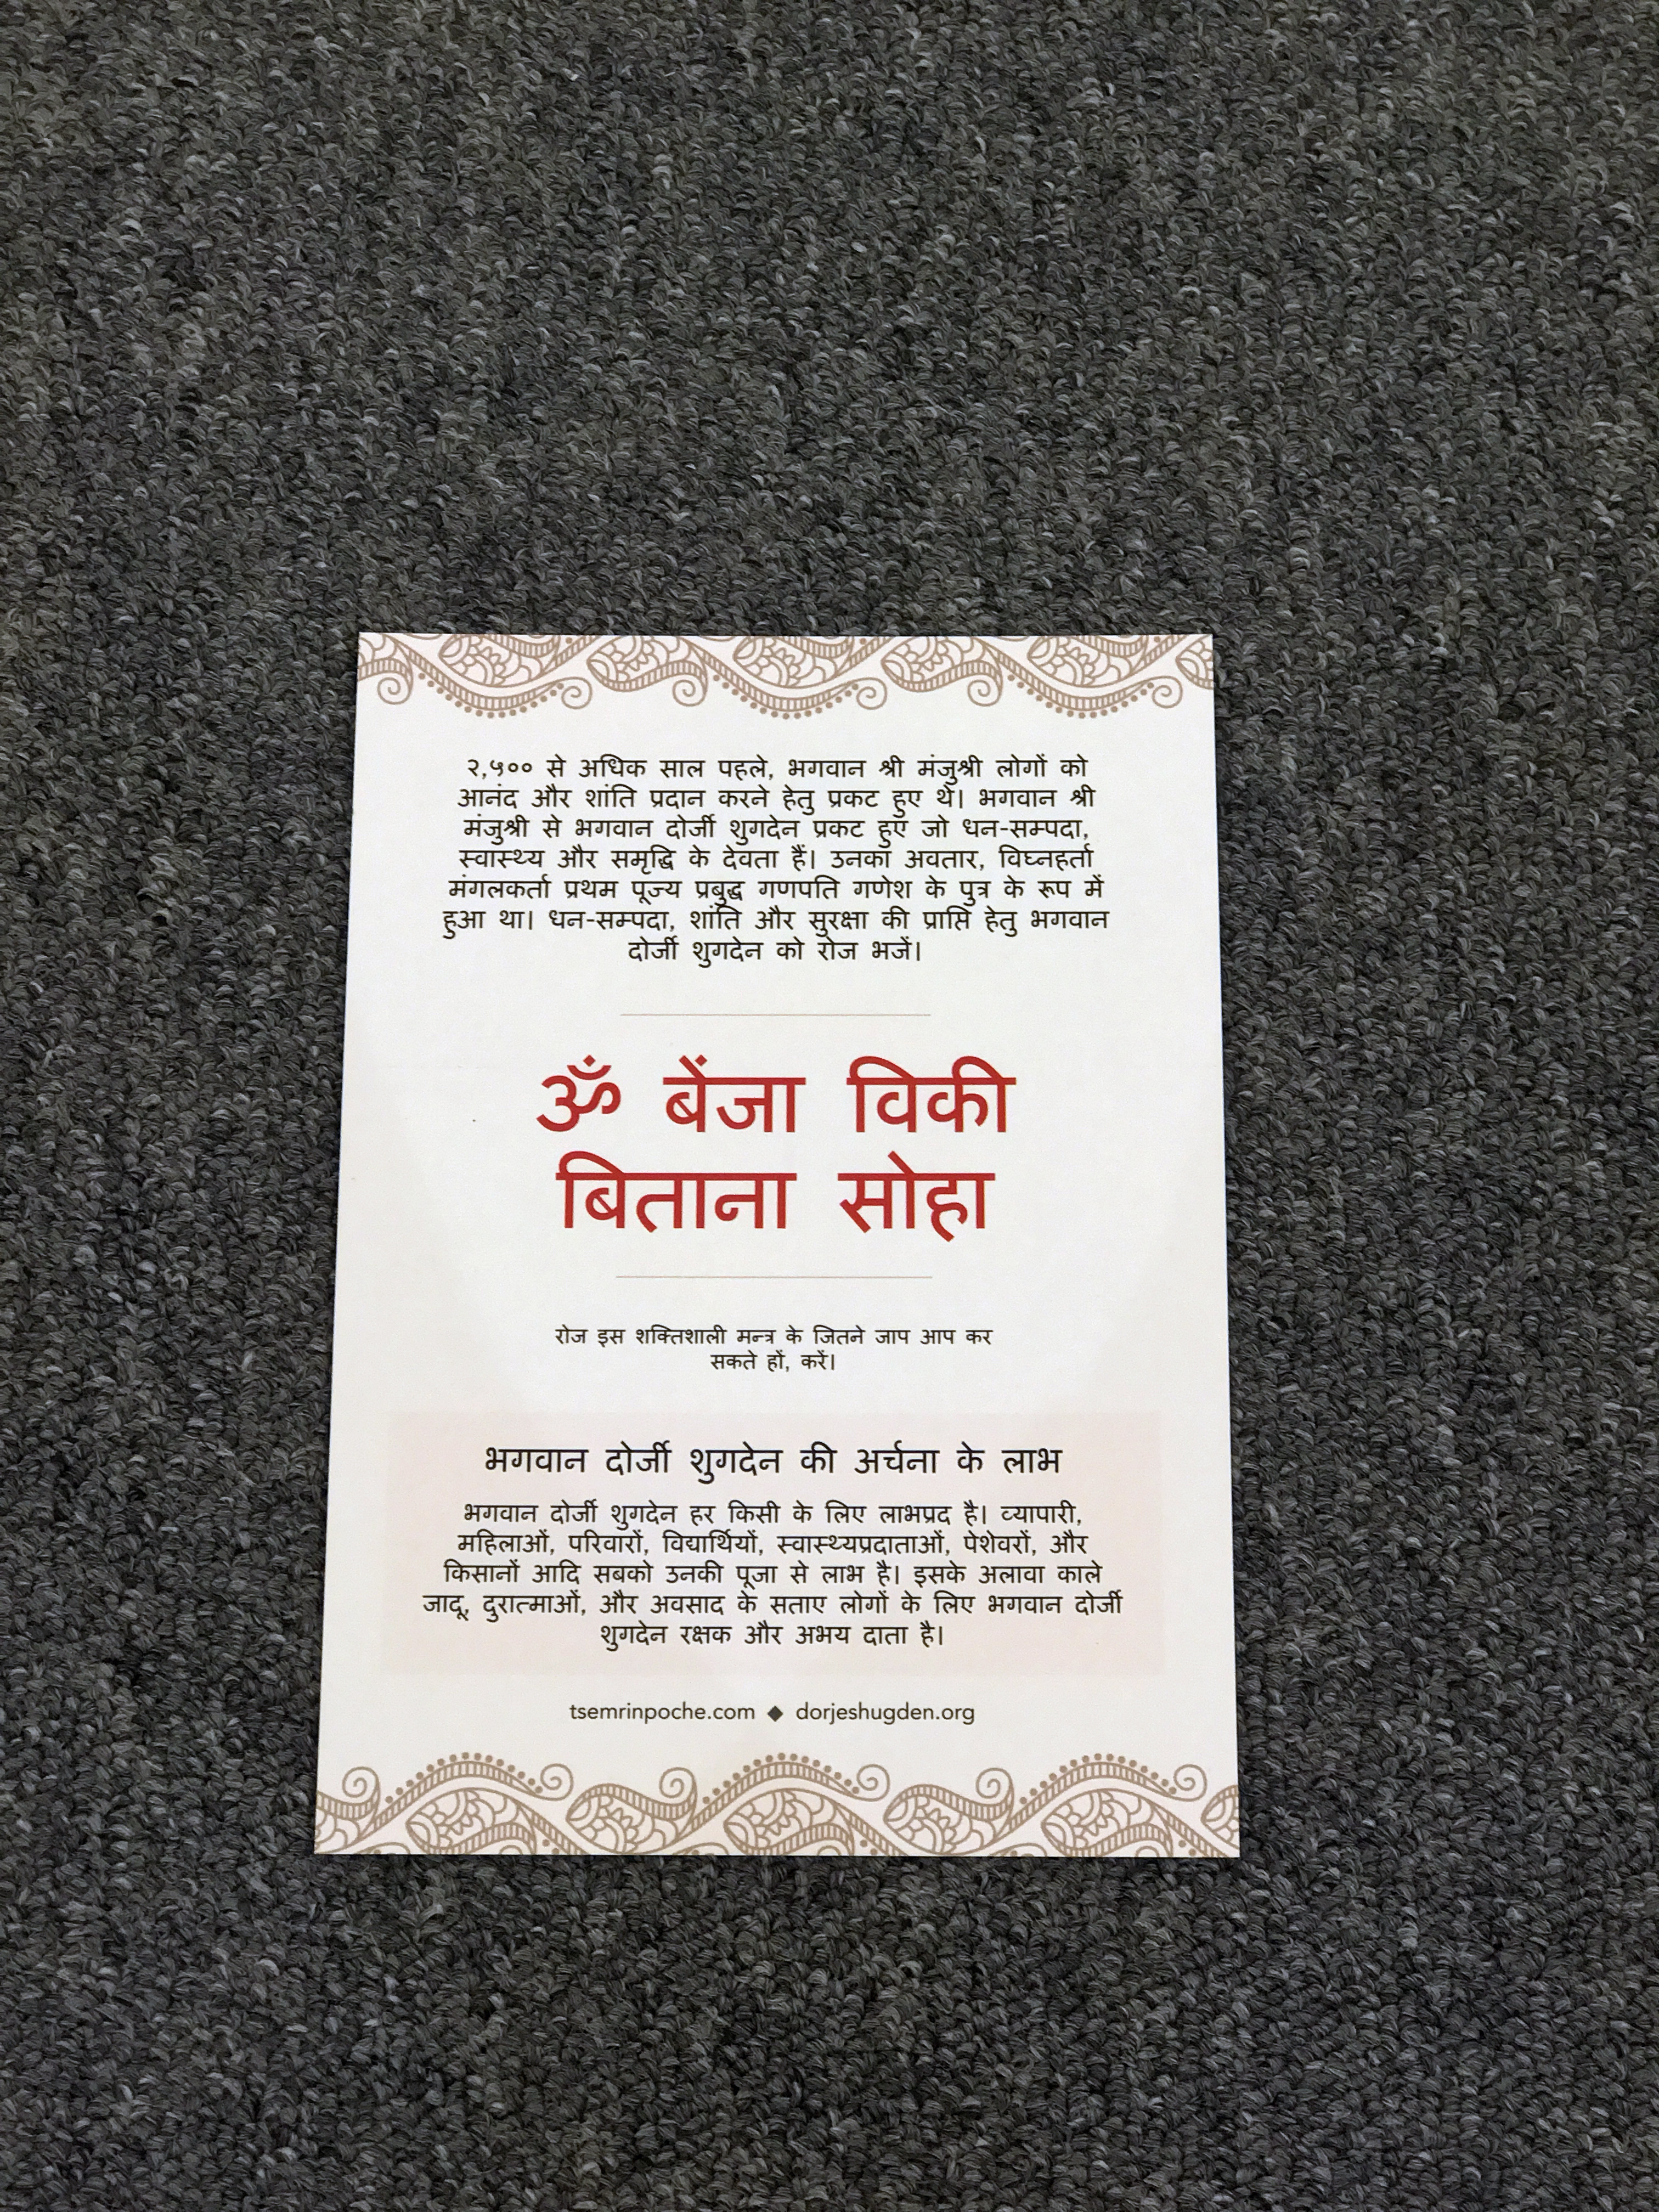 २,५०० से अधिक साल पहले, भगवान श्री मंजुश्री लोगों को
आनंद और शांति प्रदान करने हेतु प्रकट हुए थे। भगवान श्री
मंजुश्री से भगवान दोर्जी शुगदेन प्रकट हुए जो धन-सम्पदा,
स्वास्थ्य और समृद्धि के देवता हैं। उनका अवतार, विघ्नहर्ता
मंगलकर्ता प्रथम पूज्य प्रबुद्ध गणपति गणेश के पुत्र के रूप में
हुआ था। धन-सम्पदा, शांति और सुरक्षा की प्राप्ति हेतु भगवान
दोर्जी शुगदेन को रोज भजें।
ॐ बेंजा विकी
बिताना सोहा
रोज इस शक्तिशाली मन्त्र के जितने जाप आप कर
सकते हों, करें।
भगवान दोर्जी शुगदेन की अर्चना के लाभ
भगवान दोर्जी शुगदेन हर किसी के लिए लाभप्रद है। व्यापारी,
महिलाओं, परिवारों, विद्यार्थियों, स्वास्थ्यप्रदाताओं, पेशेवरों, और
किसानों आदि सबको उनकी पूजा से लाभ है। इसके अलावा काले
जादू, दुरात्माओं, और अवसाद के सताए लोगों के लिए भगवान दोर्जी
शुगदेन रक्षक और अभय दाता है।
tsemrinpoche.com ◆ dorjeshugden.org